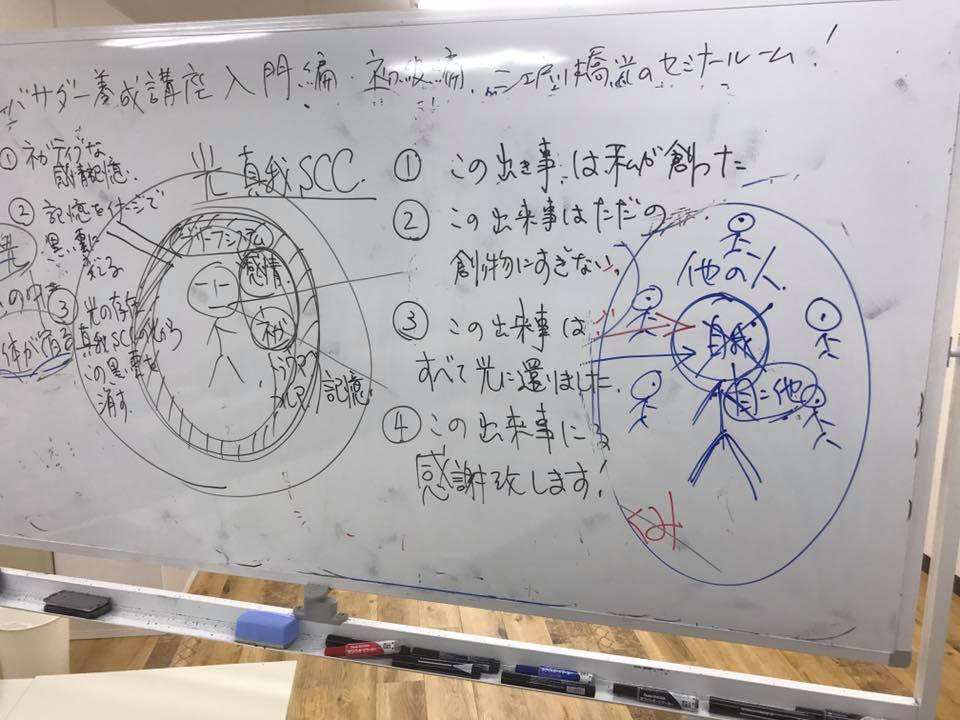 バサダー養成講座入門編・初級編.
のセミナールーム!
① ネガティブな
感情記憶.
② 記憶をイメージで
黒い雲に
③ 光の存在
真我SCCの光から
この黒い雲を
消す.
光 真我SCC.
ビリーフシステム
感情.
ネガ
トラウマ
記憶
① この出き事は私が創った
② この出来事はただの
創物にすぎない。
③ この出来事は
すべて光に還りました.
④ この出来事に
感謝致します!
他の人
自我
自=他